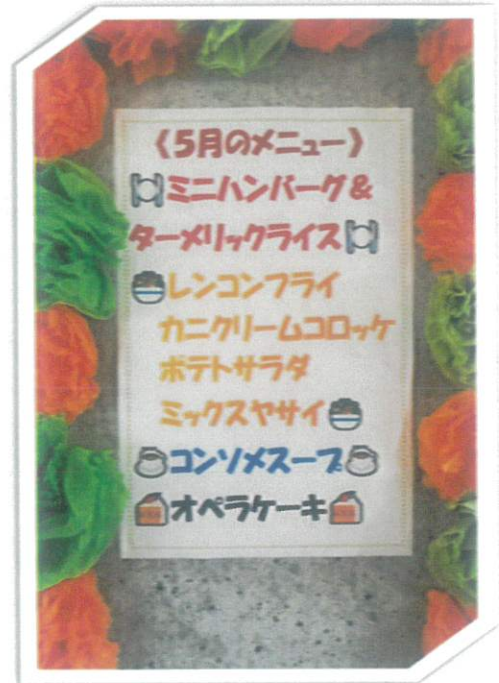 《5月のメニュー》
ミニハンバーグ&
ターメリックライス
レンコンフライ
カニクリームコロッケ
ポテトサラダ
ミックスヤサイ
コンソメスープ
オペラケーキ